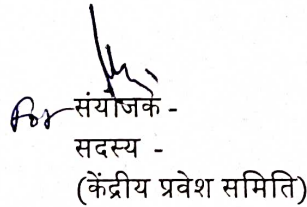 for संयोजक -
सदस्य -
(केंद्रीय प्रवेश समिति)